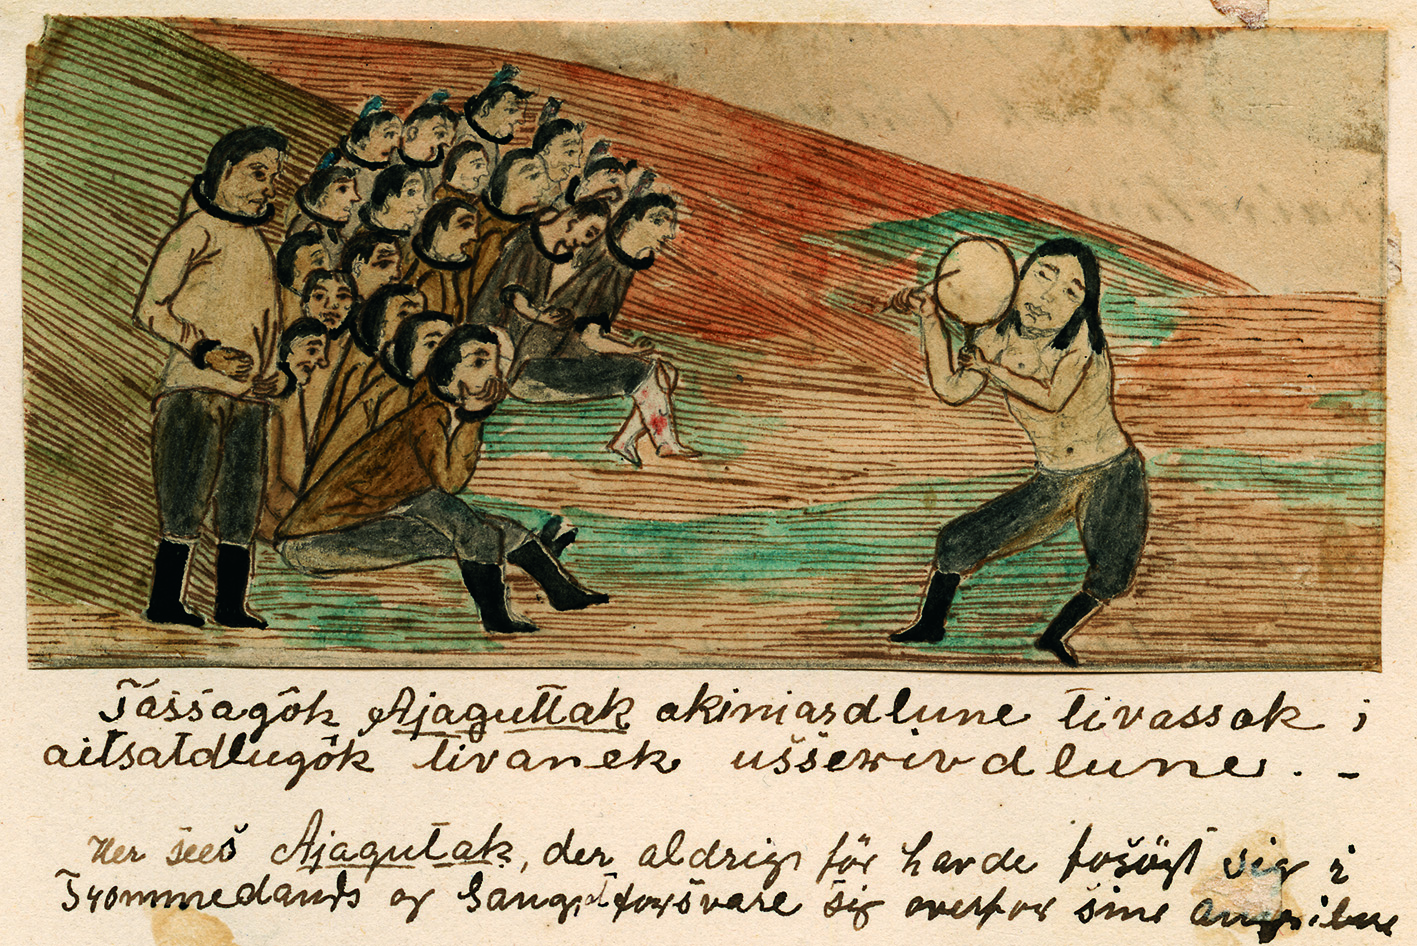 Tássagôk Ajaguttak akiniardlune tivassok i
aitsatdlugôk tivanek usserivdlune. -
Her sees Ajagutak, der aldrig för havde forsögt sig i
Trommedands og Sang at forsvare sig overfor sine